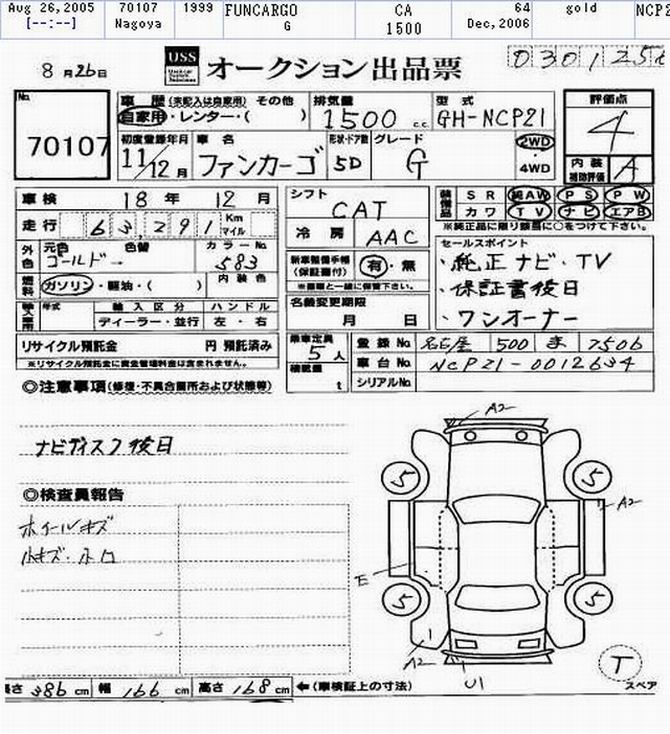 Aug 26,2005 70107 1999 FUNCARGO CA 64 gold NCP2
[--:--] Nagoya G 1500 Dec,2006
8月26日 USS オークション出品票 030125
No. 70107
車歴 (未記入は自家用) その他 排気量 型式 評価点
自家用・レンター・( ) 1500 c.c. GH-NCP21 4
初度登録年月 車名 形状・ドア数 グレード 2WD
11/12月 ファンカーゴ 5D G ・4WD 内装補助評価 A
車検 18年 12月 シフト CAT 装備品 SR 純AW PS PW
カワ TV ナビ エアB
走行 63291 Km マイル 冷房 AAC ※純正品に限り該当に○をつけて下さい。
外色 元色 色替 カラーNo. セールスポイント
ゴールド→ 583 新車整備手帳(保証書付) 有・無 ・純正ナビ・TV
燃料 ガソリン・軽油・( ) 内装色 ※車両と一緒に保管下さい。 ・保証書後日
輸入車用 年式 輸入区分 ハンドル 名義変更期限 ・ワンオーナー
ディーラー・並行 左・右 月 日
リサイクル預託金 円 預託済み 乗車定員 5人 登録No. 名古屋 500 ま 7506
※リサイクル預託金に資金管理料金は含まれません。 積載量 t 車台No. NCP21-0012634
シリアルNo.
◎注意事項(修復・不具合箇所および状態等)
ナビディスク後日
◎検査員報告
ホイールキズ
小キズ・凹
A2
5 5
A2
E
5 5
A2 U1
T
スペア
長さ 386 cm 幅 166 cm 高さ 168 cm ←(車検証上の寸法)